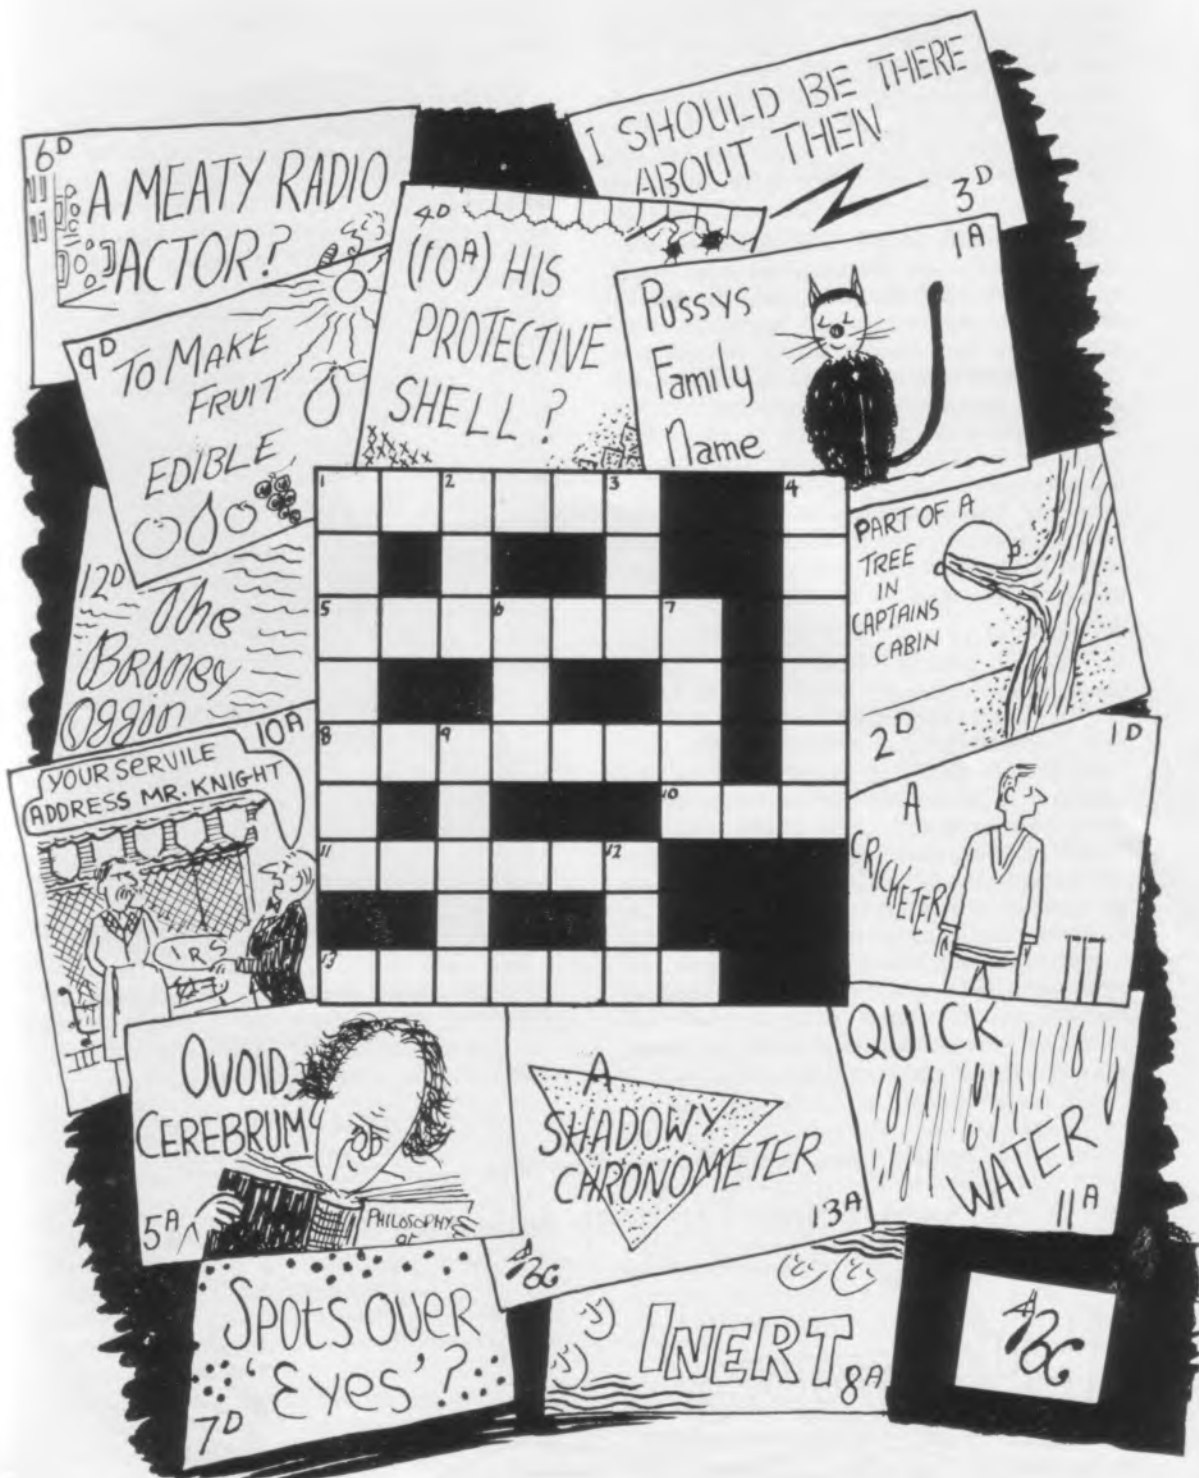 6D
A MEATY RADIO
ACTOR?
I SHOULD BE THERE
ABOUT THEN
3D
4D
(10A) HIS
PROTECTIVE
SHELL?
1A
Pussys
Family
Name
9D
TO MAKE
FRUIT
EDIBLE
12D
The
Briney
Oggin
PART OF A
TREE
IN
CAPTAINS
CABIN
2D
10A
YOUR SERVILE
ADDRESS MR. KNIGHT
IRS
1D
A
CRICKETER
1 2 3 4
5 6 7
8 9
10
11 12
13
OVOID
CEREBRUM
PHILOSOPHY
OF
5A
A
SHADOWY
CHRONOMETER
13A
QUICK
WATER
11A
SPOTS OVER
'EYES'?
7D
INERT
8A